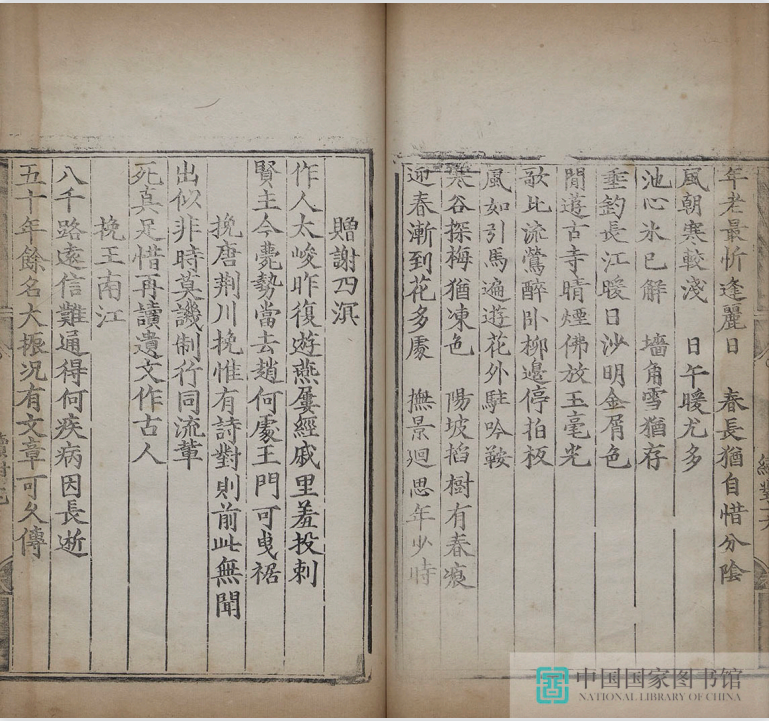 年老最忻逢麗日　春長猶自惜分陰
風朝寒較淺　日午暖尤多
池心氷已解　墻角雪猶存
垂釣長江暖日沙明金屑色
閒遊古寺晴煙佛放玉毫光
歌比流鶯醉卧柳邊停拍板
風如引馬遍遊花外駐吟鞍
寒谷探梅猶凍色　陽坡掐樹有春痕
迎春漸到花多處　撫景廻思年少時
贈謝四溟
作人太峻昨復遊燕屢經戚里羞投刺
賢主今薨勢當去趙何處王門可曵裾
挽唐荆川挽惟有詩對則前此無聞
出似非時莫譏制行同流輩
死真足惜再讀遺文作古人
挽王南江
八千路遠信難通得何疾病因長逝
五十年餘名大振况有文章可久傳
中国国家图书馆
NATIONAL LIBRARY OF CHINA